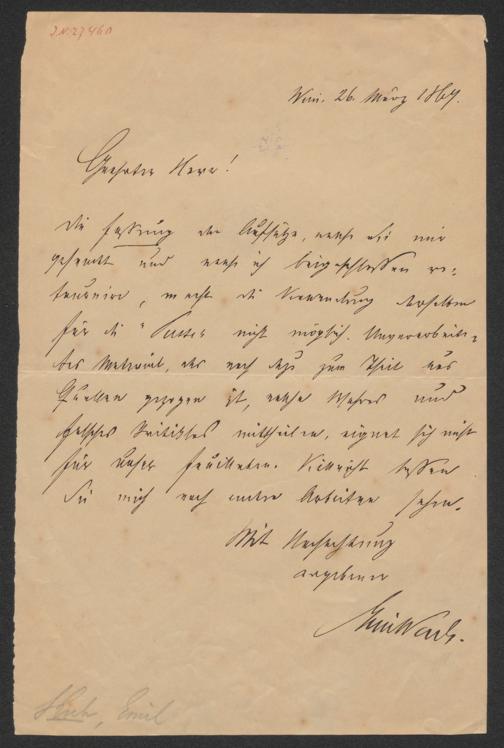 I.N. 27460
Wien, 26. März 1869.
Geehrter Herr!
Die Fassung der Aufsätze, welche Sie mir
gesendet und welche ich beigeschlossen re-
tournire, macht die Verwendung derselben
für die "Presse" nicht möglich. Unverarbeite-
tes Material, das noch dazu zum Theil aus
Quellen gezogen ist, welche Wahres und
Falsches kritiklos mittheilen, eignet sich nicht
für unser Feuilleton. Vielleicht lassen
Sie mich noch andere Arbeiten sehen.
Mit Hochachtung
ergebener
Emil